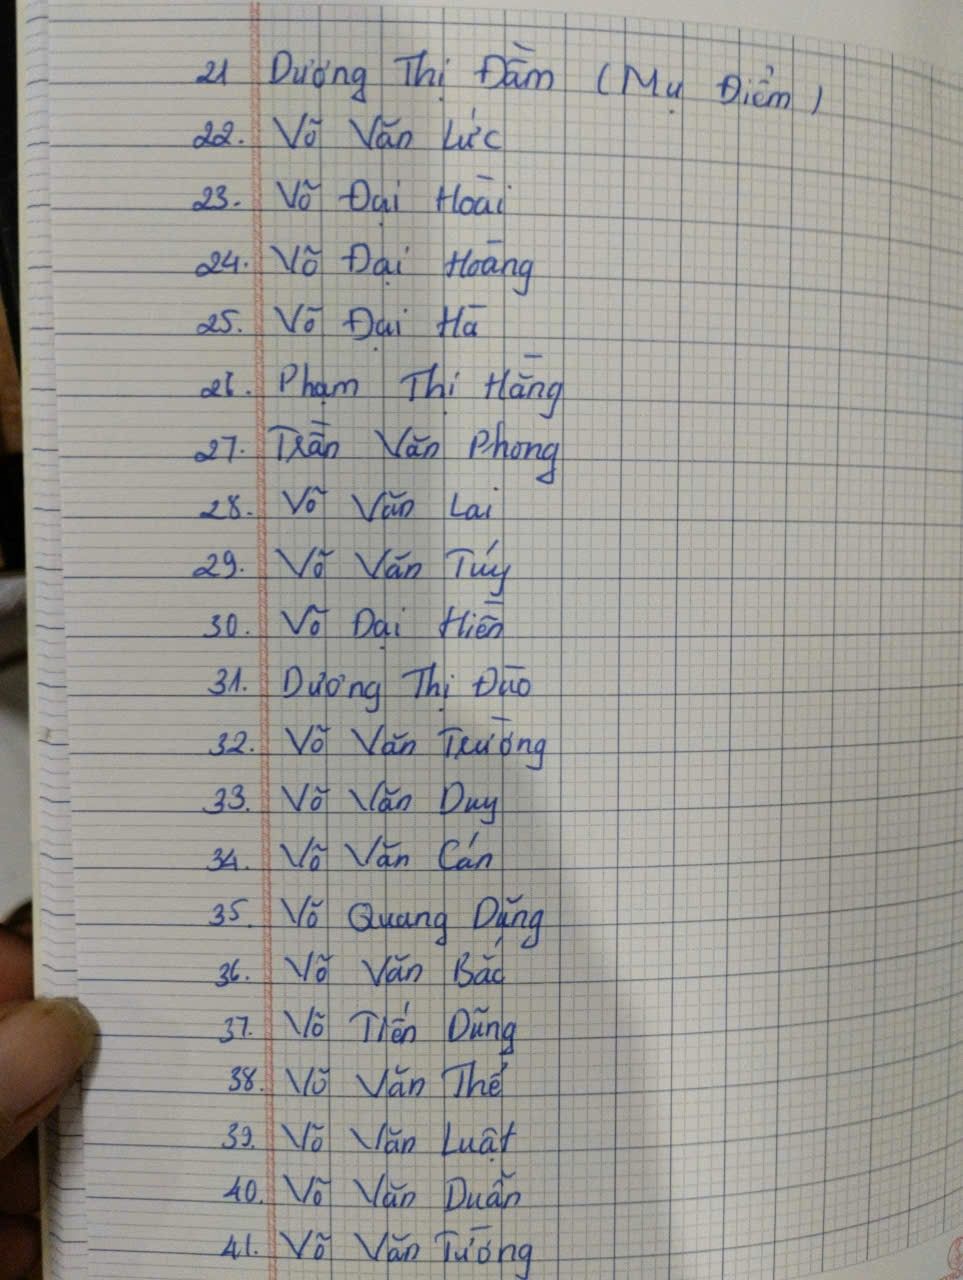 21 Dương Thị Đầm (Mụ Điểm)
22. Võ Văn Lức
23. Võ Đại Hoài
24. Võ Đại Hoàng
25. Võ Đại Hà
26. Phạm Thị Hằng
27. Trần Văn Phong
28. Võ Văn Lai
29. Võ Văn Túy
30. Võ Đại Hiền
31. Dương Thị Đào
32. Võ Văn Trường
33. Võ Văn Duy
34. Võ Văn Cán
35. Võ Quang Dũng
36. Võ Văn Bắc
37. Võ Tiến Dũng
38. Võ Văn Thế
39. Võ Văn Luật
40. Võ Văn Duẩn
41. Võ Văn Tường